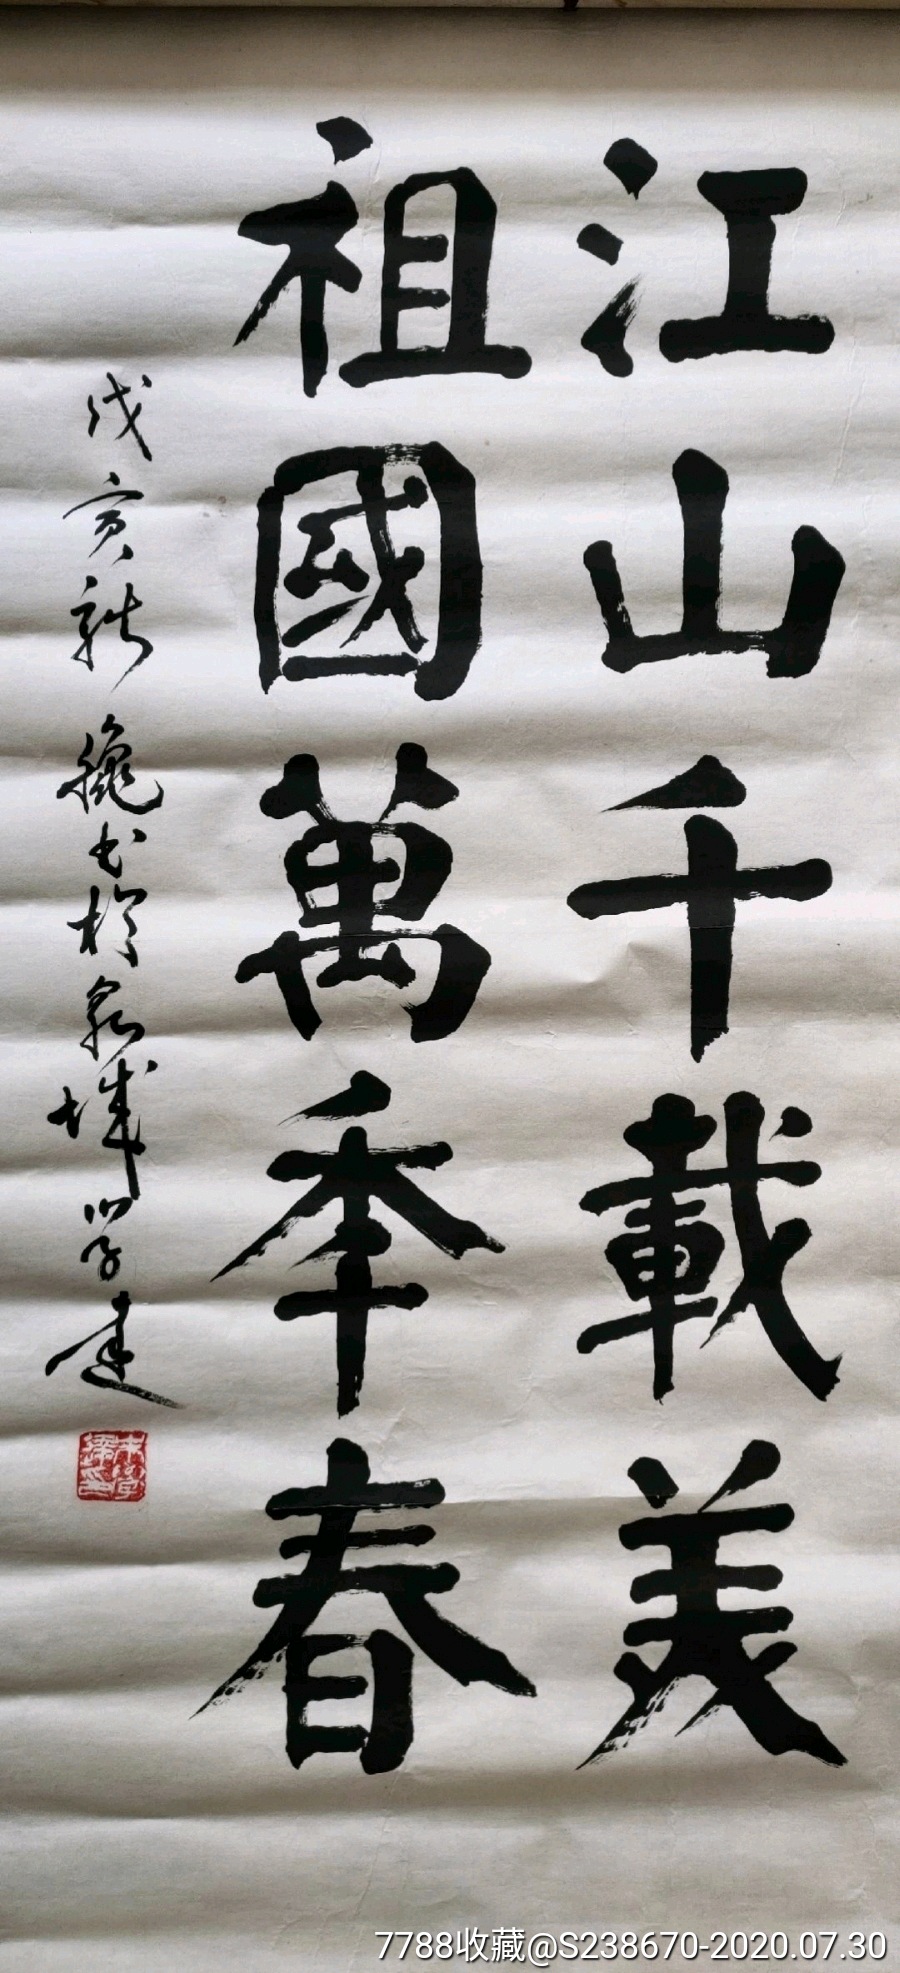 江山千載美
祖國萬秊春
戊寅新龝书於泉城學建
7788收藏@S238670-2020.07.30